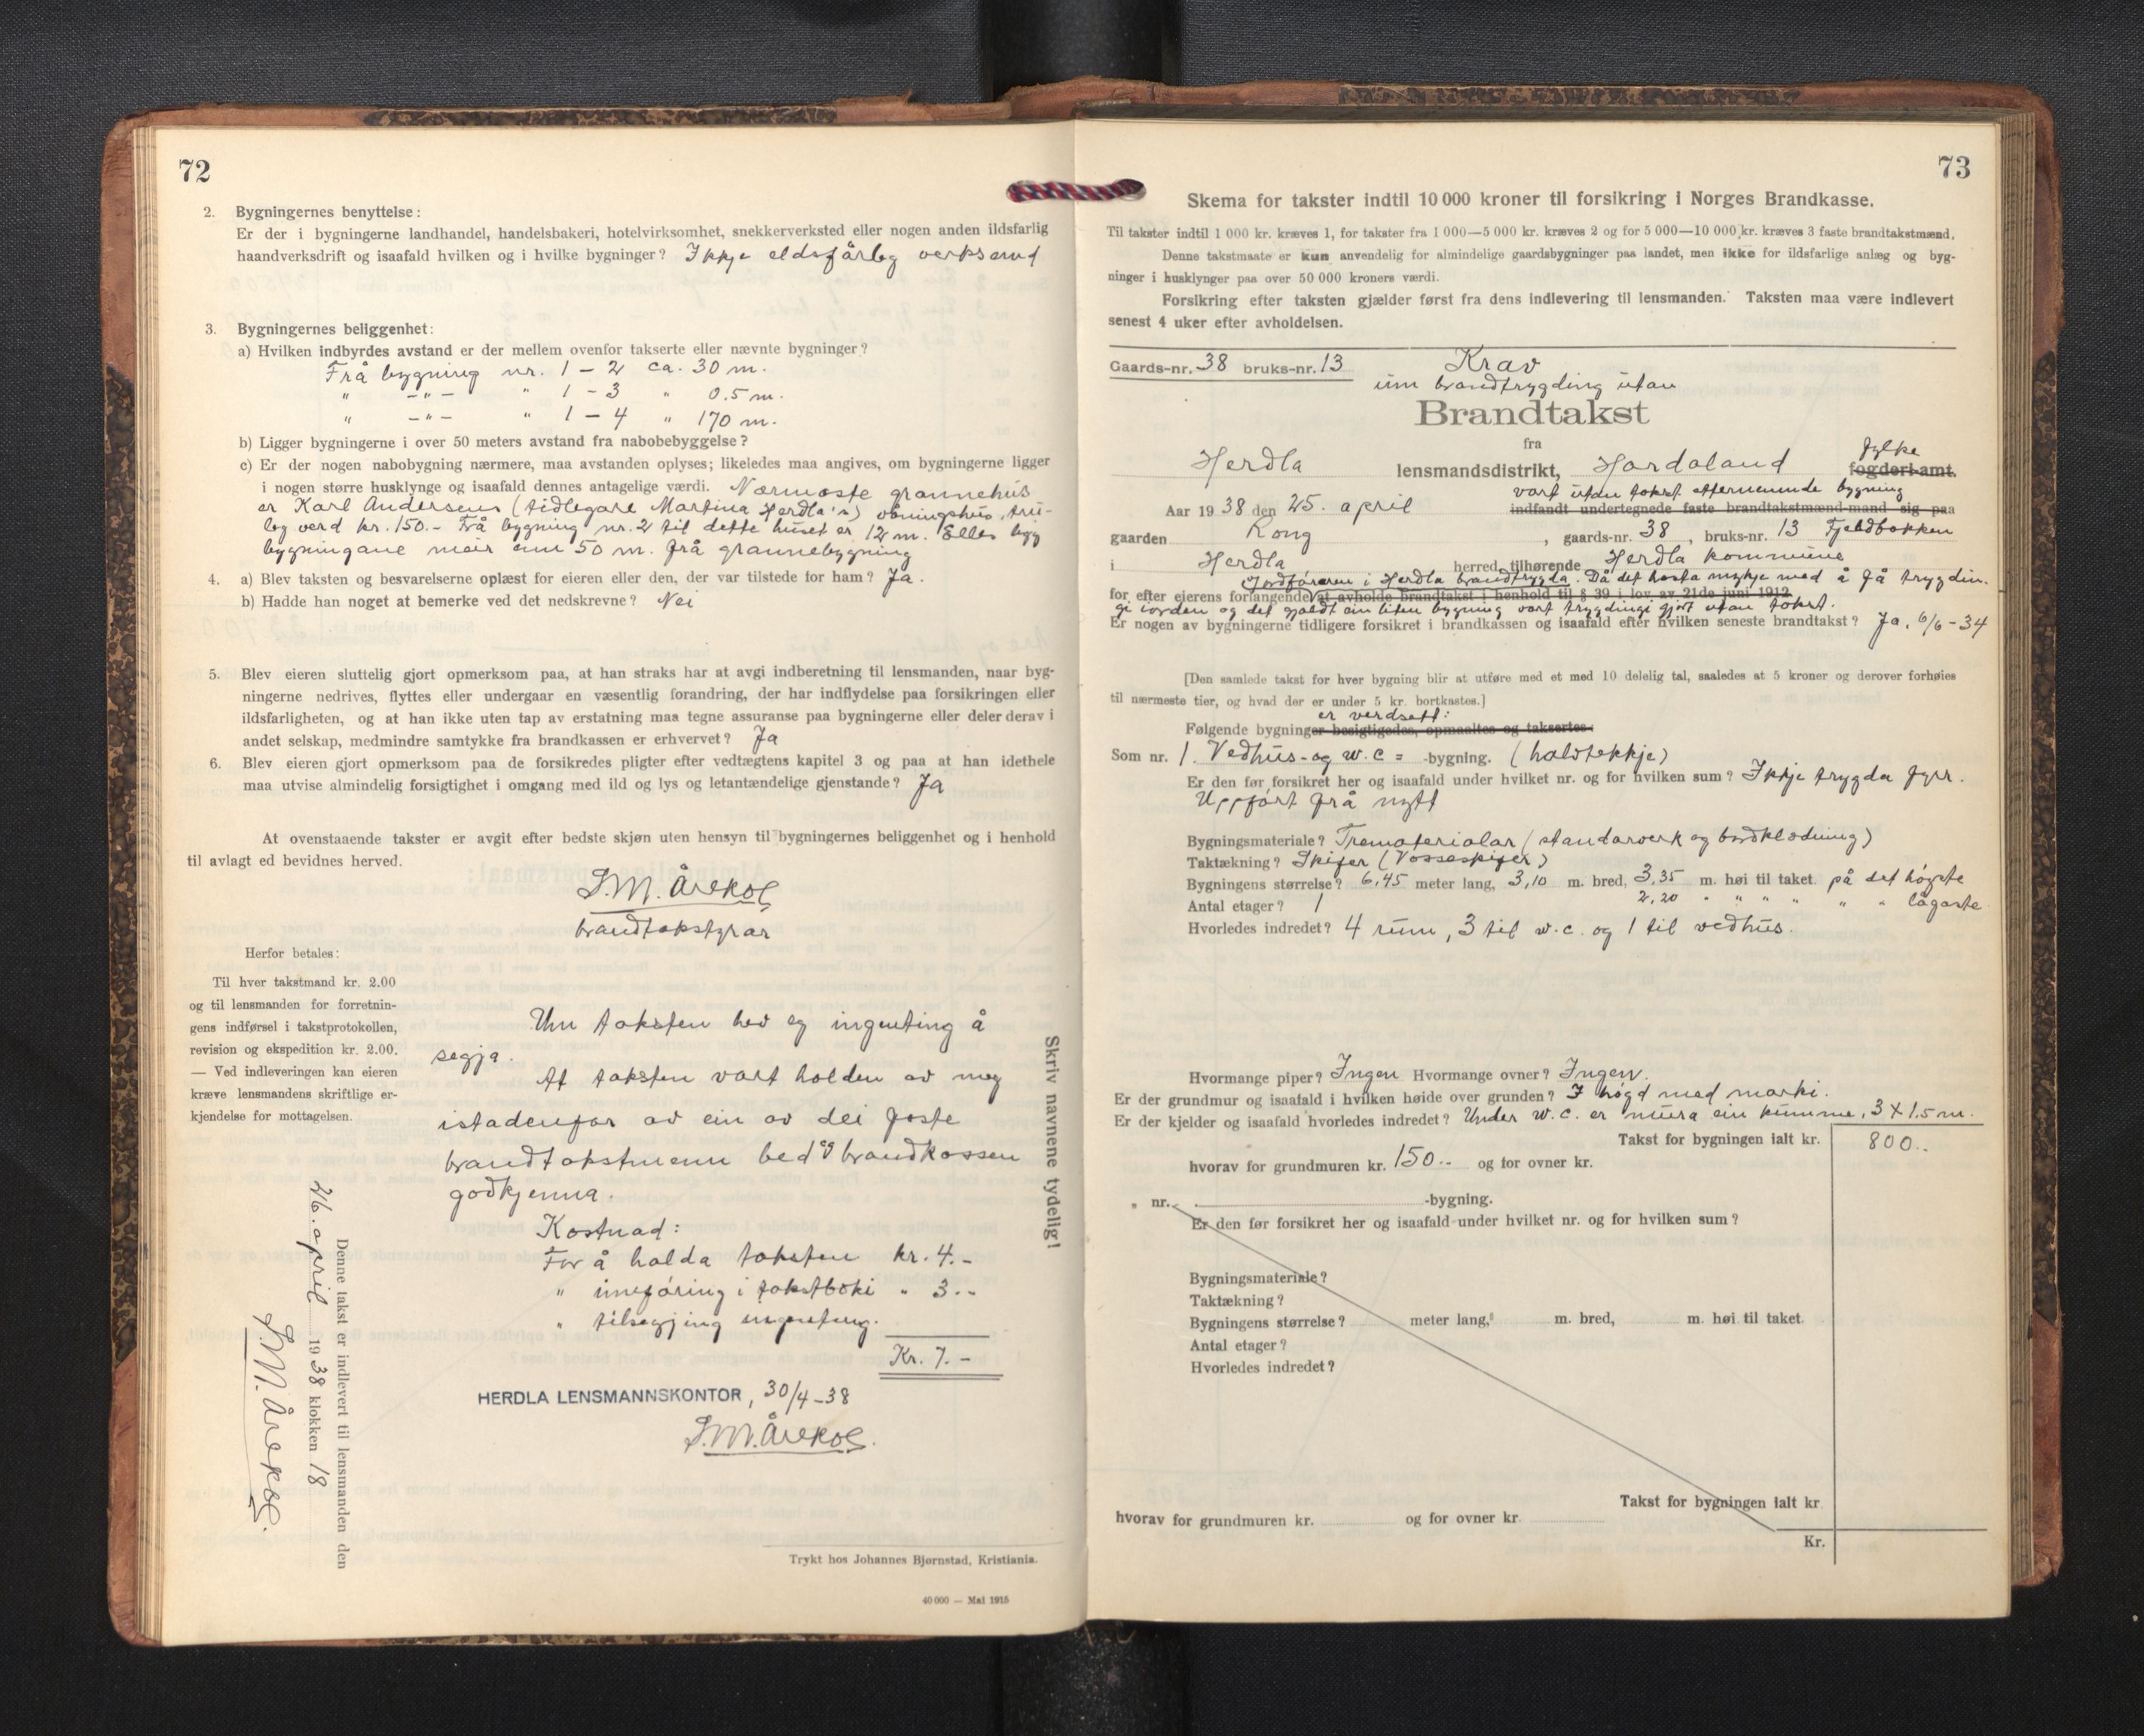 72
2. Bygningernes benyttelse:
Er der i bygningerne landhandel, handelsbakeri, hotelvirksomhet, snekkerverksted eller nogen anden ildsfarlig
haandverksdrift og isaafald hvilken og i hvilke bygninger? Ikkje eldsfårleg verksemd
3. Bygningernes beliggenhet:
a) Hvilken indbyrdes avstand er der mellem ovenfor takserte eller nævnte bygninger?
Frå bygning nr. 1 – 2 ca. 30 m.
" –"– " 1 – 3 " 0.5 m.
" –"– " 1 – 4 " 170 m.
b) Ligger bygningerne i over 50 meters avstand fra nabobebyggelse?
c) Er der nogen nabobygning nærmere, maa avstanden oplyses; likeledes maa angives, om bygningerne ligger
i nogen større husklynge og isaafald dennes antagelige værdi. Nærmaste grannehus
er Karl Andersens (tidlegare Martina Herdla's) våningshus, tru-
leg verd kr. 150.- Frå bygning nr. 2 til dette huset er 12 m. Elles ligg
bygningane meir enn 50 m. frå grannebygning
4. a) Blev taksten og besvarelserne oplæst for eieren eller den, der var tilstede for ham? Ja.
b) Hadde han noget at bemerke ved det nedskrevne? Nei
5. Blev eieren sluttelig gjort opmerksom paa, at han straks har at avgi indberetning til lensmanden, naar byg-
ningerne nedrives, flyttes eller undergaar en væsentlig forandring, der har indflydelse paa forsikringen eller
ildsfarligheten, og at han ikke uten tap av erstatning maa tegne assuranse paa bygningerne eller deler derav i
andet selskap, medmindre samtykke fra brandkassen er erhvervet? Ja
6. Blev eieren gjort opmerksom paa de forsikredes pligter efter vedtægtens kapitel 3 og paa at han idethele
maa utvise almindelig forsigtighet i omgang med ild og lys og letantændelige gjenstande? Ja
At ovenstaaende takster er avgit efter bedste skjøn uten hensyn til bygningernes beliggenhet og i henhold
til avlagt ed bevidnes herved.
S.M. Årekol
brandtakstyrar
Herfor betales:
Til hver takstmand kr. 2.00
og til lensmanden for forretnin-
gens indførsel i takstprotokollen,
revision og ekspedition kr. 2.00.
— Ved indleveringen kan eieren
kræve lensmandens skriftlige er-
kjendelse for mottagelsen.
Um taksten hev eg ingenting å
segja.
At taksten vart halden av meg
istadenfor av ein av dei faste
brandtakstmenn bed eg brandkassen
godkjenna.
Kostnad:
For å halda taksten kr. 4.–
" innføring i takstboki " 3.–
" tilsegjing ingenting.
Kr. 7.–
HERDLA LENSMANNSKONTOR, 30/4–38
S.M. Årekol.
Skriv navnene tydelig!
Denne takst er indlevert til lensmanden den
26. april 1938 klokken 18
S.M. Årekol.
Trykt hos Johannes Bjørnstad, Kristiania.
40 000 — Mai 1915
73
Skema for takster indtil 10 000 kroner til forsikring i Norges Brandkasse.
Til takster indtil 1 000 kr. kræves 1, for takster fra 1 000—5 000 kr. kræves 2 og for 5 000—10 000 kr. kræves 3 faste brandtakstmænd.
Denne takstmaate er kun anvendelig for almindelige gaardsbygninger paa landet, men ikke for ildsfarlige anlæg og byg-
ninger i husklynger paa over 50 000 kroners værdi.
Forsikring efter taksten gjælder først fra dens indlevering til lensmanden. Taksten maa være indlevert
senest 4 uker efter avholdelsen.
Gaards-nr. 38 bruks-nr. 13 Krav
um brandtrygding utan
Brandtakst
fra
Herdla lensmandsdistrikt, Hordaland fylke fogderi amt.
vart utan takst etternemnde bygning
Aar 1938 den 25. april indfandt undertegnede faste brandtakstmænd mand sig paa
gaarden Rong, gaards-nr. 38, bruks-nr. 13 Fjeldbakken
i Herdla herred, tilhørende Herdla kommune
Jordføraren i Herdla brandtrygda. Då det hasta mykje med å få trygdin-
for efter eierens forlangende at avholde brandtakst i henhold til § 39 i lov av 21de juni 1912
gi iorden og det gjaldt ein liten bygning vart trygdingi gjort utan takst.
Er nogen av bygningerne tidligere forsikret i brandkassen og isaafald efter hvilken seneste brandtakst? Ja. 6/6–34
[Den samlede takst for hver bygning blir at utføre med et med 10 delelig tal, saaledes at 5 kroner og derover forhøies
til nærmeste tier, og hvad der er under 5 kr. bortkastes.]
er verdsatt:
Følgende bygninger besigtigedes, opmaaltes og taksertes:
Som nr. 1. Vedhus- og w.c = -bygning. (halvtekkje)
Er den før forsikret her og isaafald under hvilket nr. og for hvilken sum? Ikkje trygda fyrr.
Uppført frå nytt
Bygningsmateriale? Trematerialar (standarverk og bordklædning)
Taktækning? Skifer (Vosseskifer)
Bygningens størrelse? 6,45 meter lang, 3,10 m. bred, 3,35 m. høi til taket på det høgste
Antal etager? 1 2,20 " " " " " " lågaste
Hvorledes indredet? 4 rum, 3 til w.c. og 1 til vedhus.
Hvormange piper? Ingen Hvormange ovner? Ingen.
Er der grundmur og isaafald i hvilken høide over grunden? I høgd med marki.
Er der kjelder og isaafald hvorledes indredet? Under w.c. er mura ein kumme, 3 X 1.5 m.
Takst for bygningen ialt kr. 800..
hvorav for grundmuren kr. 150.. og for ovner kr.
" nr. -bygning.
Er den før forsikret her og isaafald under hvilket nr. og for hvilken sum?
Bygningsmateriale?
Taktækning?
Bygningens størrelse? meter lang, m. bred, m. høi til taket.
Antal etager?
Hvorledes indredet?
Takst for bygningen ialt kr.
hvorav for grundmuren kr. og for ovner kr.
Kr.